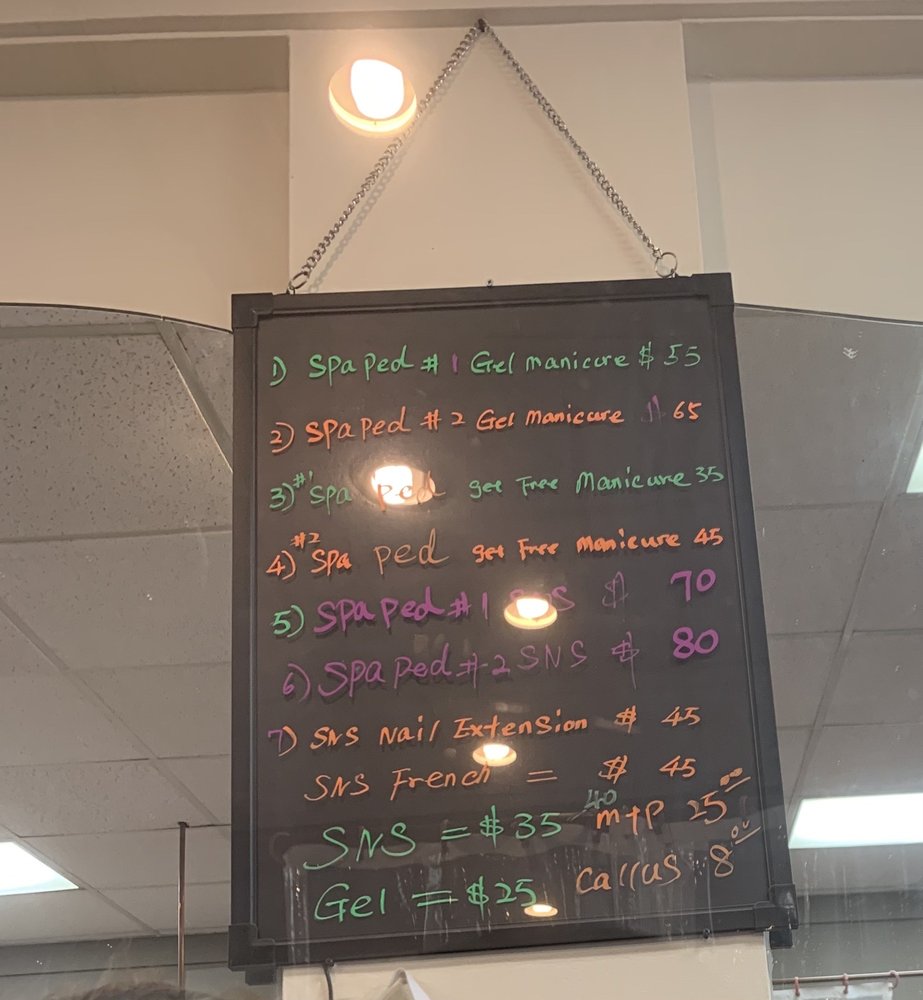 1) Spa ped # 1 Gel manicure $ 55
2) Spa ped # 2 Gel Manicure $ 65
3) #1 Spa ped get Free Manicure 35
4) #2 Spa ped get Free manicure 45
5) Spa ped # 1 SNS $ 70
6) Spa ped # 2 SNS $ 80
7) SNS Nail Extension $ 45
SNS French = $ 45
SNS = $ 35 40 m+p 25 00
Gel = $ 25 callus 8 00